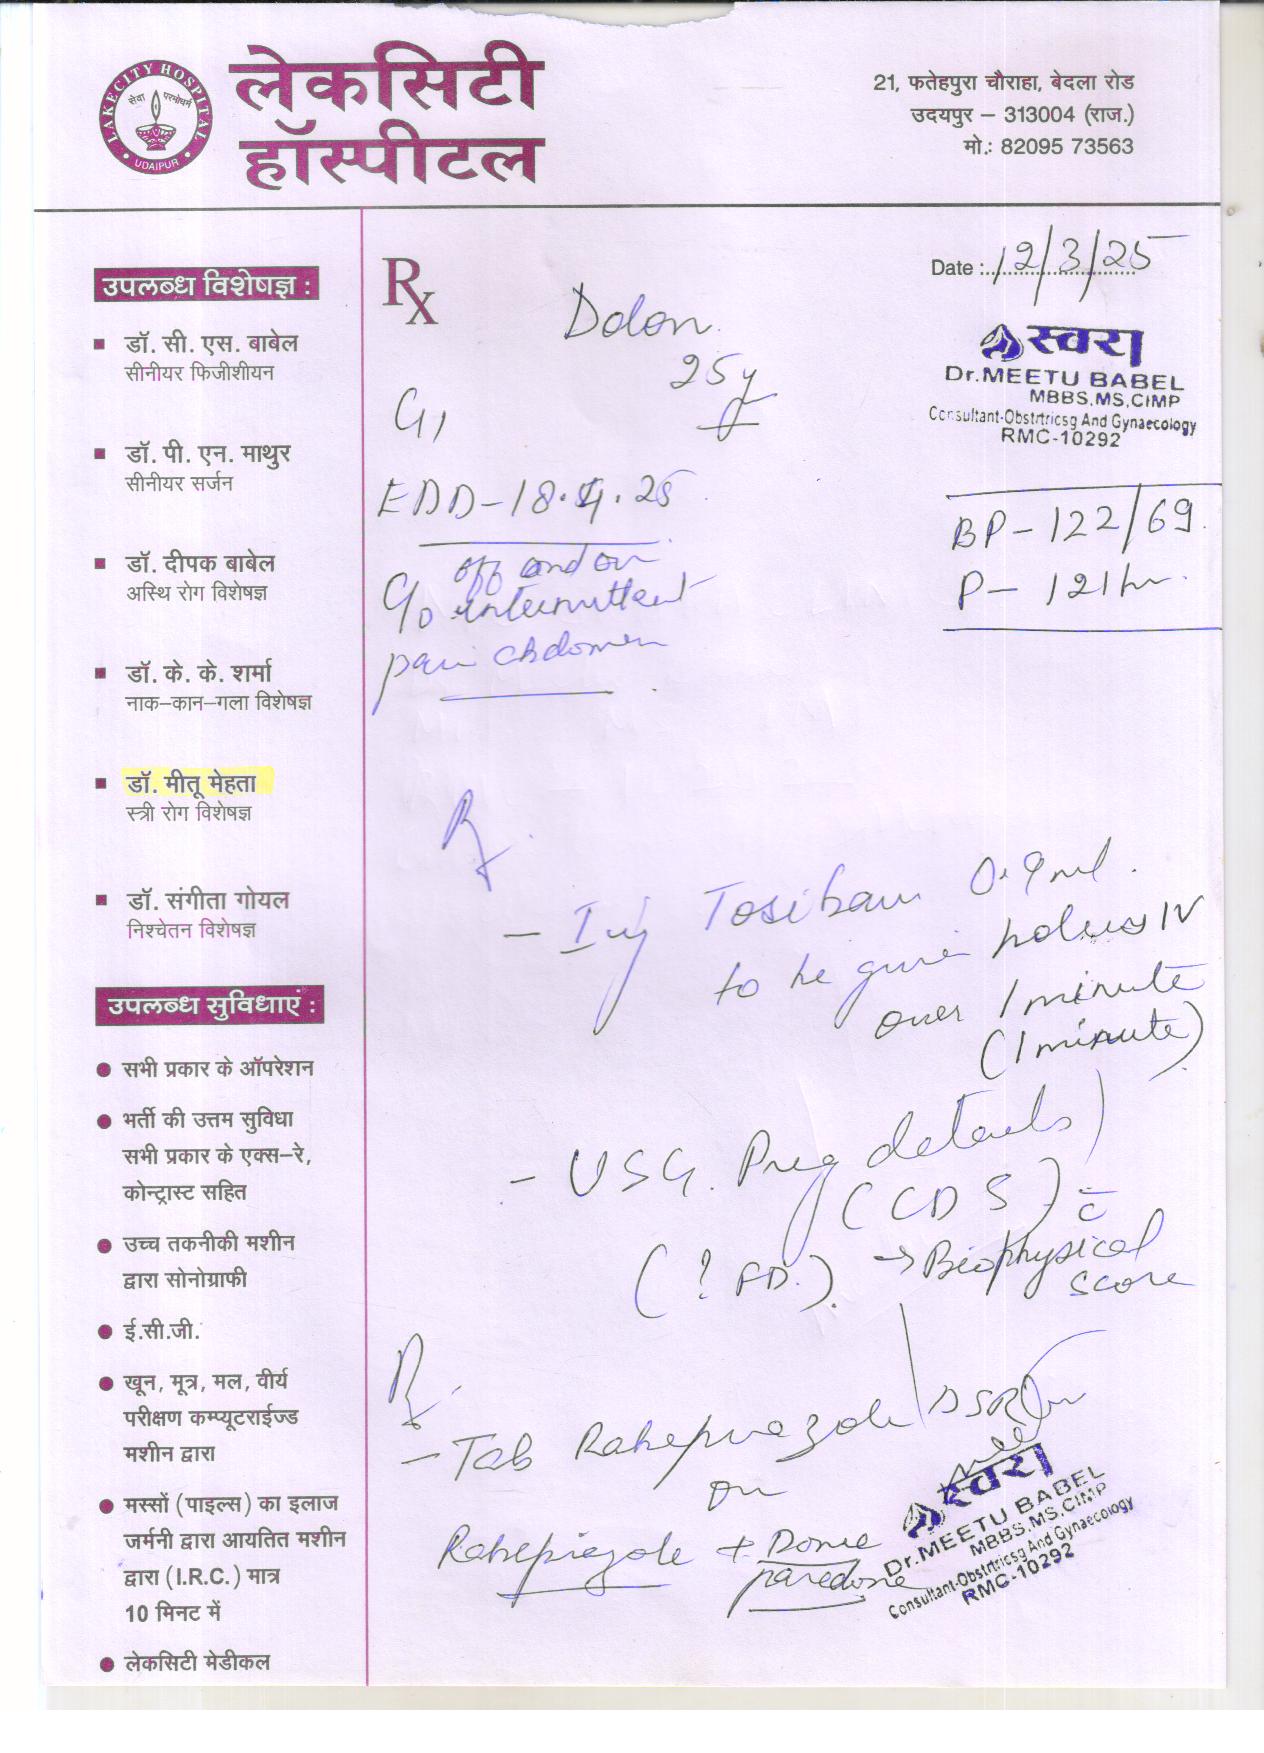 LAKECITY HOSPITAL
सेवा परमोधर्म
UDAIPUR
लेकसिटी
हॉस्पीटल
21, फतेहपुरा चौराहा, बेदला रोड
उदयपुर – 313004 (राज.)
मो.: 82095 73563
उपलब्ध विशेषज्ञ :
डॉ. सी. एस. बाबेल
सीनीयर फिजीशीयन
डॉ. पी. एन. माथुर
सीनीयर सर्जन
डॉ. दीपक बाबेल
अस्थि रोग विशेषज्ञ
डॉ. के. के. शर्मा
नाक–कान–गला विशेषज्ञ
डॉ. मीतू मेहता
स्त्री रोग विशेषज्ञ
डॉ. संगीता गोयल
निश्चेतन विशेषज्ञ
उपलब्ध सुविधाएं :
सभी प्रकार के ऑपरेशन
भर्ती की उत्तम सुविधा
सभी प्रकार के एक्स–रे,
कोन्ट्रास्ट सहित
उच्च तकनीकी मशीन
द्वारा सोनोग्राफी
ई.सी.जी.
खून, मूत्र, मल, वीर्य
परीक्षण कम्प्यूटराईज्ड
मशीन द्वारा
मस्सों (पाइल्स) का इलाज
जर्मनी द्वारा आयतित मशीन
द्वारा (I.R.C.) मात्र
10 मिनट में
लेकसिटी मेडीकल
Rx
Date : 12/3/25
स्वरा
Dr.MEETU BABEL
MBBS,MS,CIMP
Consultant-Obstrtricsg And Gynaecology
RMC-10292
Dolon
25y
G1
EDD-18.4.25
BP-122/69
P-121
off and on
C/o intermittent
pain abdomen
Rx
- Inj Tosiban 0.9ml.
to be given bolus IV
over 1 minute
(1 minute)
- USG. Preg details
(CDS) c̄
(? FD.) → Biophysical
score
Rx
- Tab Rabeprazole / DSR
or
Rabeprazole + Dome
paredone
स्वरा
Dr.MEETU BABEL
MBBS,MS,CIMP
Consultant-Obstrtricsg And Gynaecology
RMC-10292